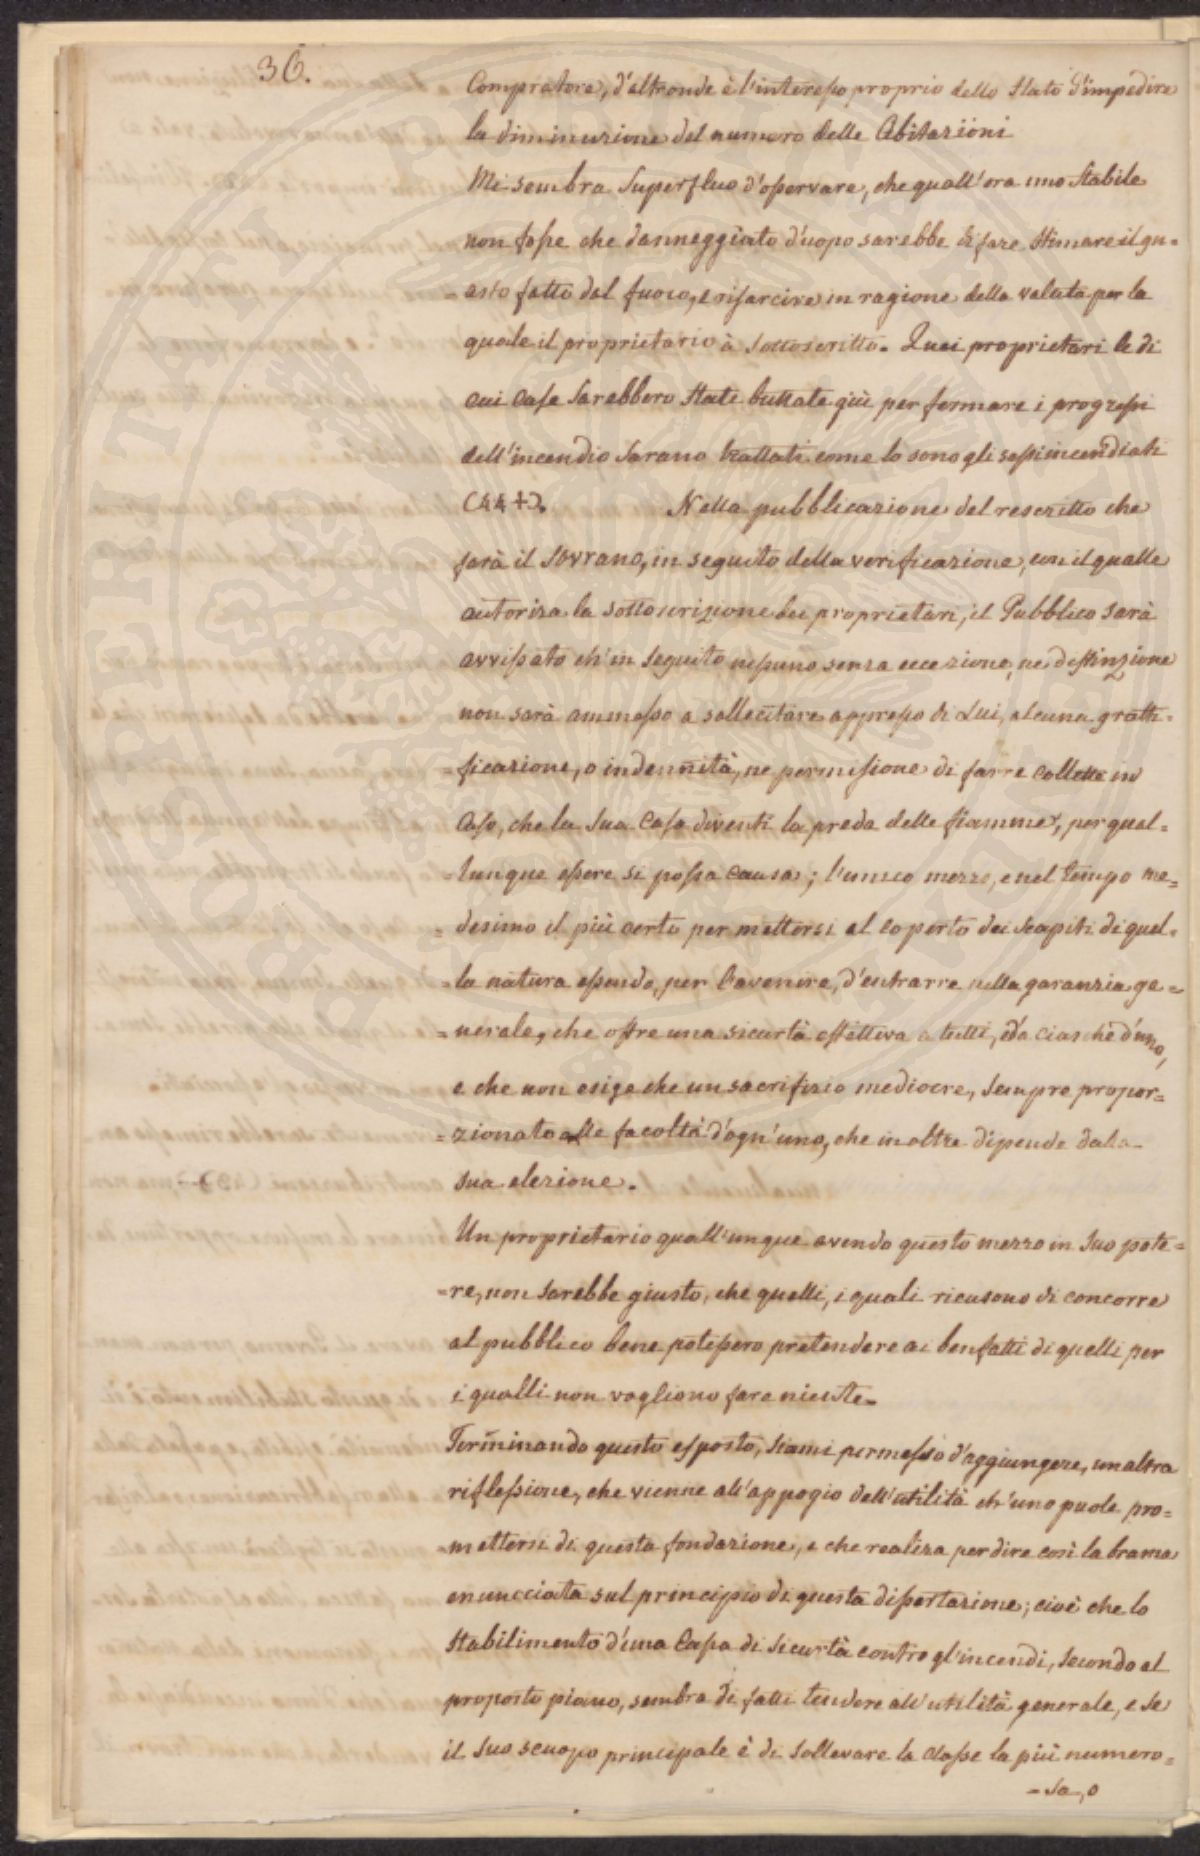 36.
Compratore, d'altronde è l'interesso proprio dello Stato d'impedire
la diminuzione del numero delle Abitazioni
Mi sembra Superfluo d'osservare, che quall'ora uno Stabile
non fosse che danneggiato d'uopo sarebbe di fare stimare il gu=
=asto fatto dal fuoco, e risarcire in ragione della valuta per la
quale il proprietario à sottoscritto. Quei proprietari le di
cui Case Sarebbero state buttate giù per fermare i progressi
dell'incendio Sarano trattati come lo sono gli stessi incendiati
(44+). Nella pubblicazione del rescritto che
farà il Sovrano, in seguito della verificazione, con il qualle
autoriza la sottoscrizione dei proprietari, il Pubblico sarà
avvissato ch'in seguito nessuno senza eccezione, ne distinzione
non sarà ammesso a sollecitare appresso di Lui, alcuna gratti=
=ficazione, o indennità, ne permissione di farre Collette in
Caso, che la Sua Casa diventi la preda delle fiamme, per qual=
=lunque essere si possa causa; l'unico mezzo, e nel tempo me=
=desimo il più certo per mettersi al coperto dei scapiti di quel=
=la natura essendo, per l'avenire, d'entrarre nella garanzia ge=
=nerale, che offre una sicurtà effettiva a tutti, ed'a ciasched'uno,
e che non esige che un sacrifizio mediocre, sempre propor=
=zionato alle facoltà d'ogn'uno, che inoltre dipende dala
sua elezione.
Un proprietario quall'unque avendo questo mezzo in Suo pote=
=re, non sarebbe giusto, che quelli, i quali ricusono di concorre
al pubblico bene potessero pretendere ai benfatti di quelli per
i qualli non vogliono fare niente.
Terminando questo esposto, siami permesso d'aggiungere, un altra
riflessione, che vienne all'appogio dell'utilità ch'uno puole pro=
=mettersi di questa fondazione, e che realiza per dire così la brama
enunciata sul principio di questa dissertazione; cioè che lo
Stabilimento d'una Cassa di Sicurtà contro gl'incendi, secondo il
proposto piano, sembra di fatti tendere all'utilità generale, e se
il Suo scuopo principale è di Sollevare la Classe la più numero=
=sa, o
PROSPERITATI PUBLICAE